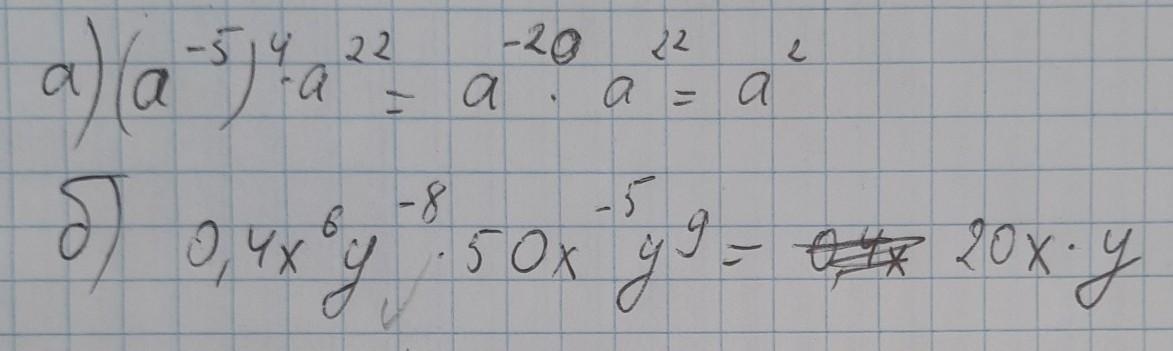 а) (a⁻⁵)⁴ · a²² = a⁻²⁰ · a²² = a²
б) 0,4x⁶y⁻⁸ · 50x⁻⁵y⁹ = 20x · y